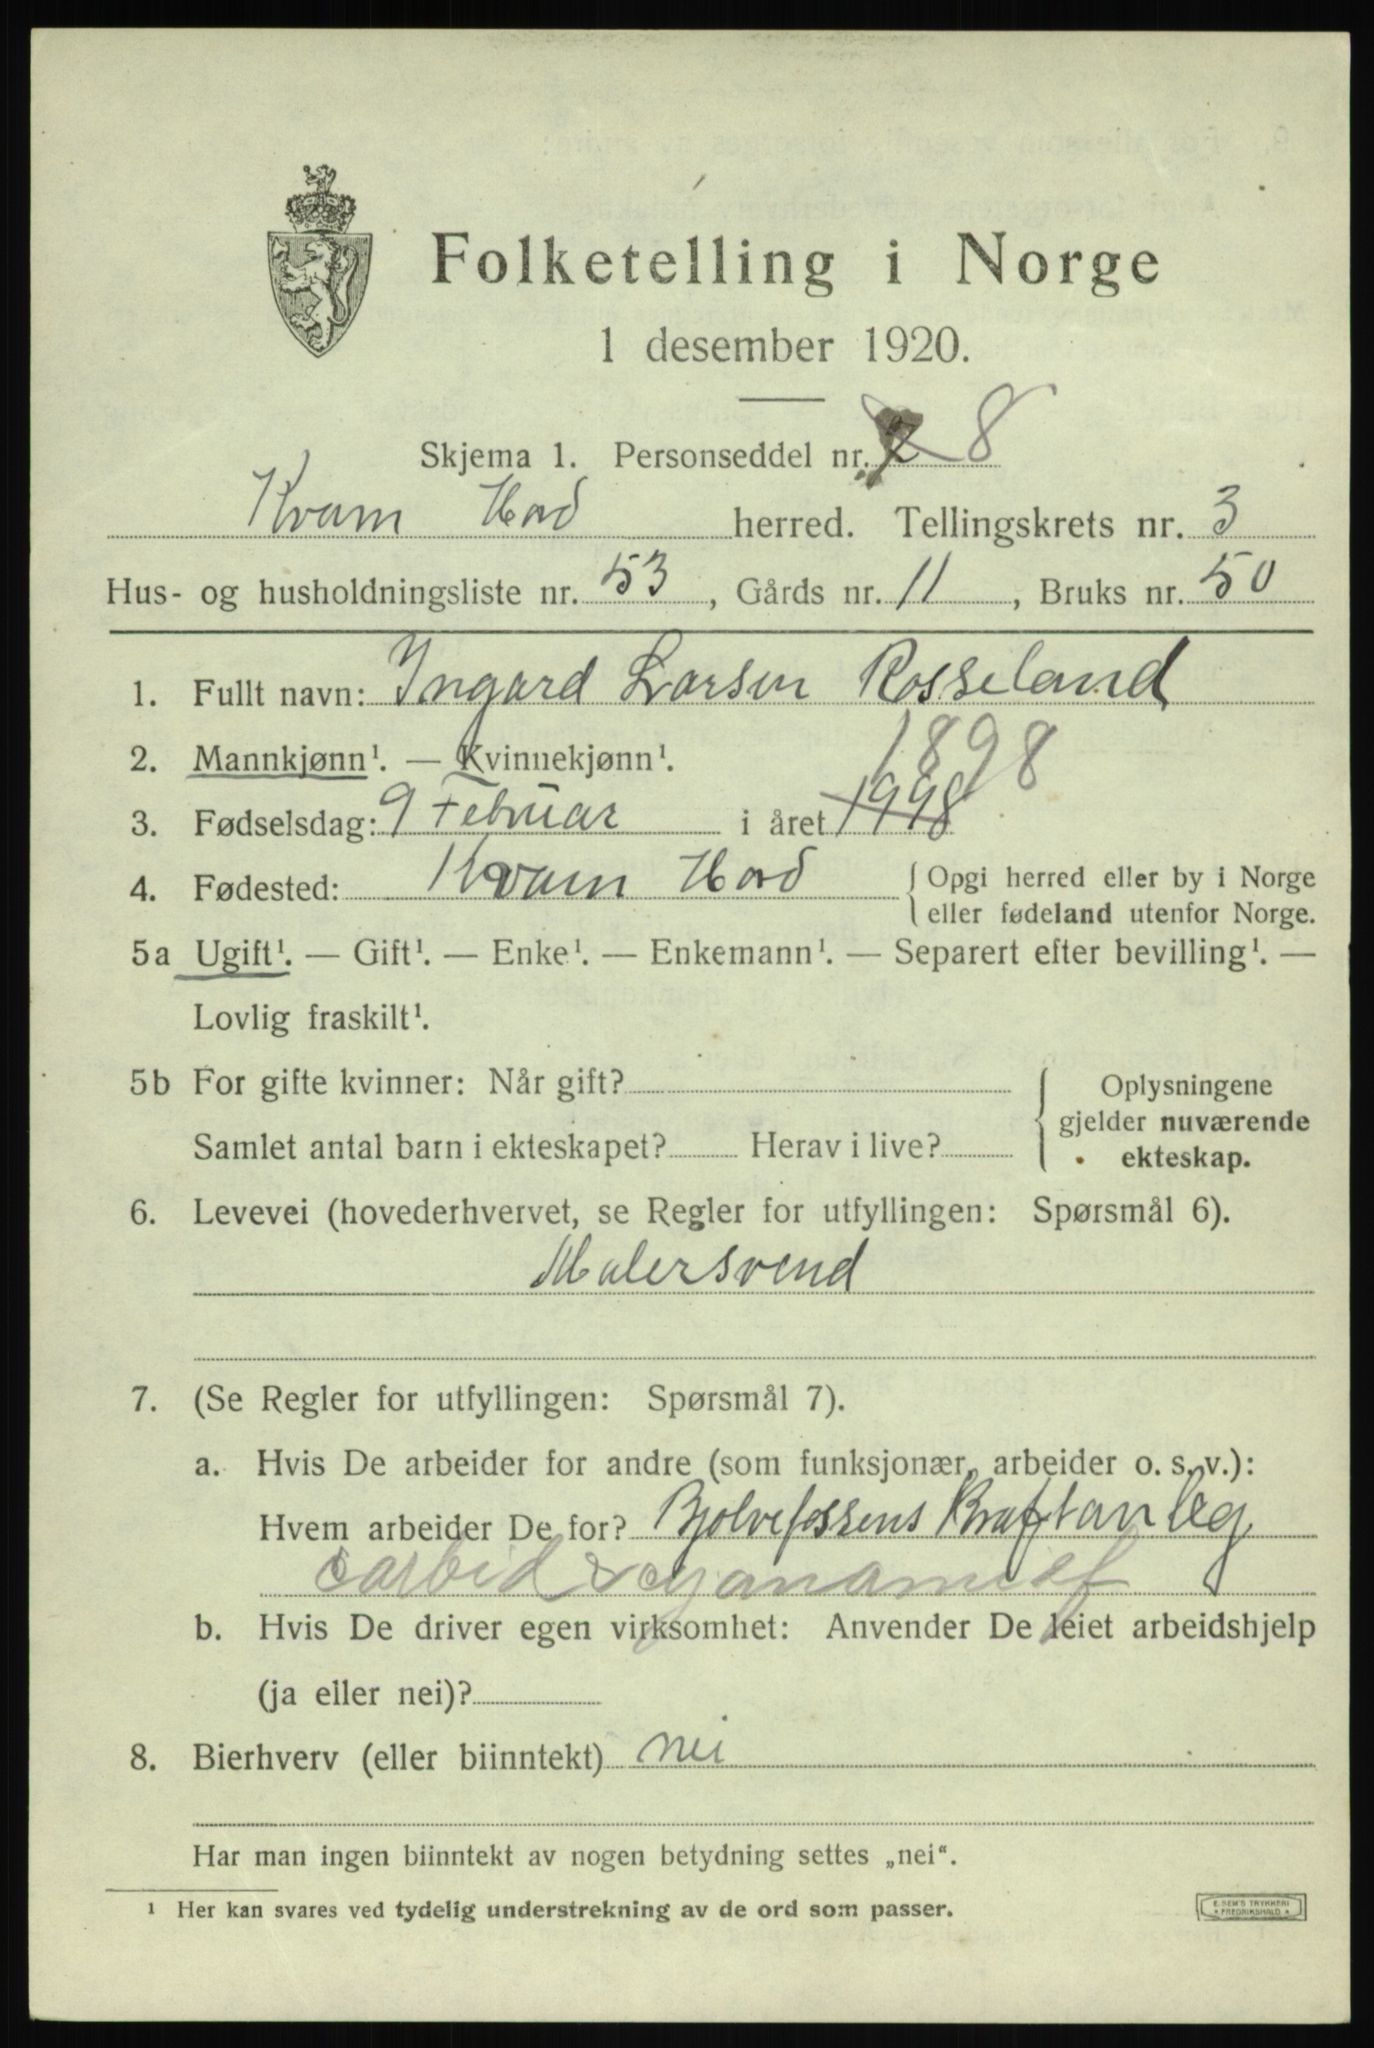 Folketelling i Norge
1 desember 1920.
Skjema 1. Personseddel nr. 8
Kvam Hord herred. Tellingskrets nr. 3
Hus- og husholdningsliste nr. 53, Gårds nr. 11, Bruks nr. 50
1. Fullt navn: Ingard Larsen Rosseland
2. Mannkjønn¹. — Kvinnekjønn¹. 1898
3. Fødselsdag: 9 Februar i året 1998
4. Fødested: Kvam Hord { Opgi herred eller by i Norge
eller fødeland utenfor Norge.
5a Ugift¹. — Gift¹. — Enke¹. — Enkemann¹. — Separert efter bevilling¹. —
Lovlig fraskilt¹.
5b For gifte kvinner: Når gift? { Oplysningene
gjelder nuværende
Samlet antal barn i ekteskapet? Herav i live? ekteskap.
6. Levevei (hovederhvervet, se Regler for utfyllingen: Spørsmål 6).
Malersvend
7. (Se Regler for utfyllingen: Spørsmål 7).
a. Hvis De arbeider for andre (som funksjonær, arbeider o. s. v.):
Hvem arbeider De for? Bjolvefossens Kraftanleg
carbid & cyanamidf
b. Hvis De driver egen virksomhet: Anvender De leiet arbeidshjelp
(ja eller nei)?
8. Bierhverv (eller biinntekt) nei
Har man ingen biinntekt av nogen betydning settes „nei“.
¹ Her kan svares ved tydelig understrekning av de ord som passer.
E. SEM'S TRYKKERI
* FREDRIKSHALD *